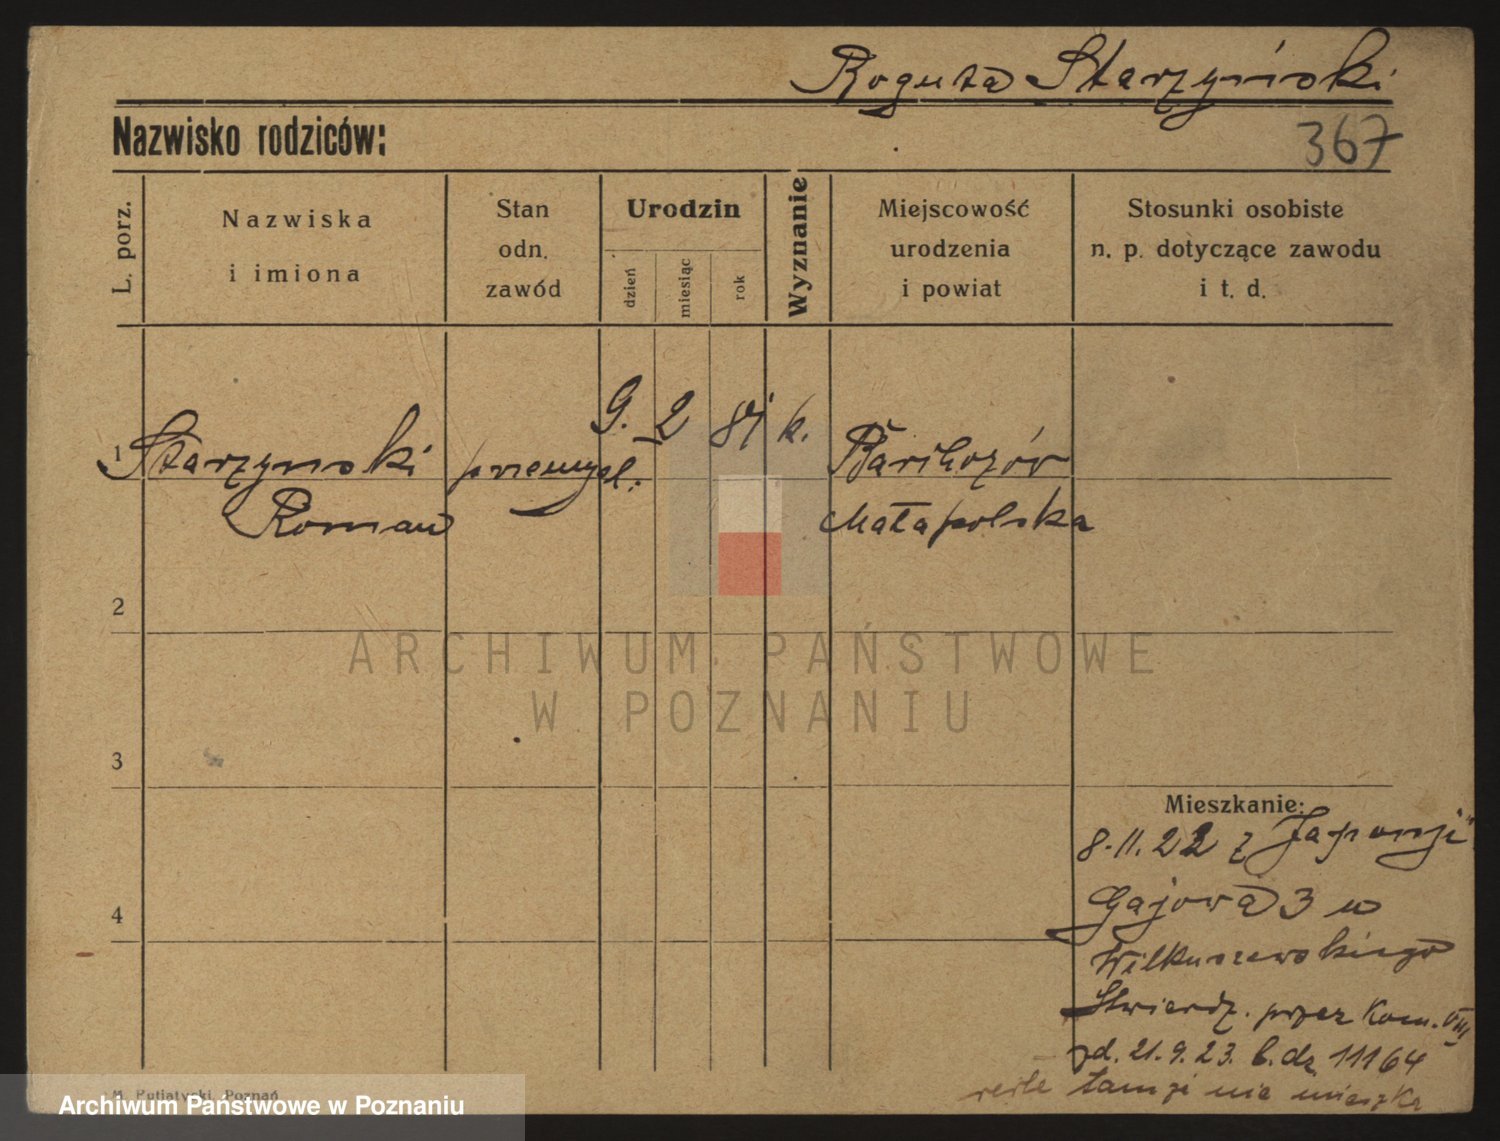 Roguta Starzyński
Nazwisko rodziców:
367
L. porz.
Nazwiska
i imiona
Stan
odn.
zawód
Urodzin
dzień
miesiąc
rok
Wyznanie
Miejscowość
urodzenia
i powiat
Stosunki osobiste
n. p. dotyczące zawodu
i t. d.
1
Starzynski przemysł. 9. 2 81 k.
Roman
Małapolska
2
3
4
ARCHIWUM PAŃSTWOWE
W POZNANIU
Mieszkanie:
8.11.22 z "Japonji"
Gajowa 3 u
Wilkuszewskiego
Stwierdz. przez Kom. VIII
zd. 21.9.23. l. dz. 11164
tamże nie mieszka
M. Putiatycki, Poznań
Archiwum Państwowe w Poznaniu